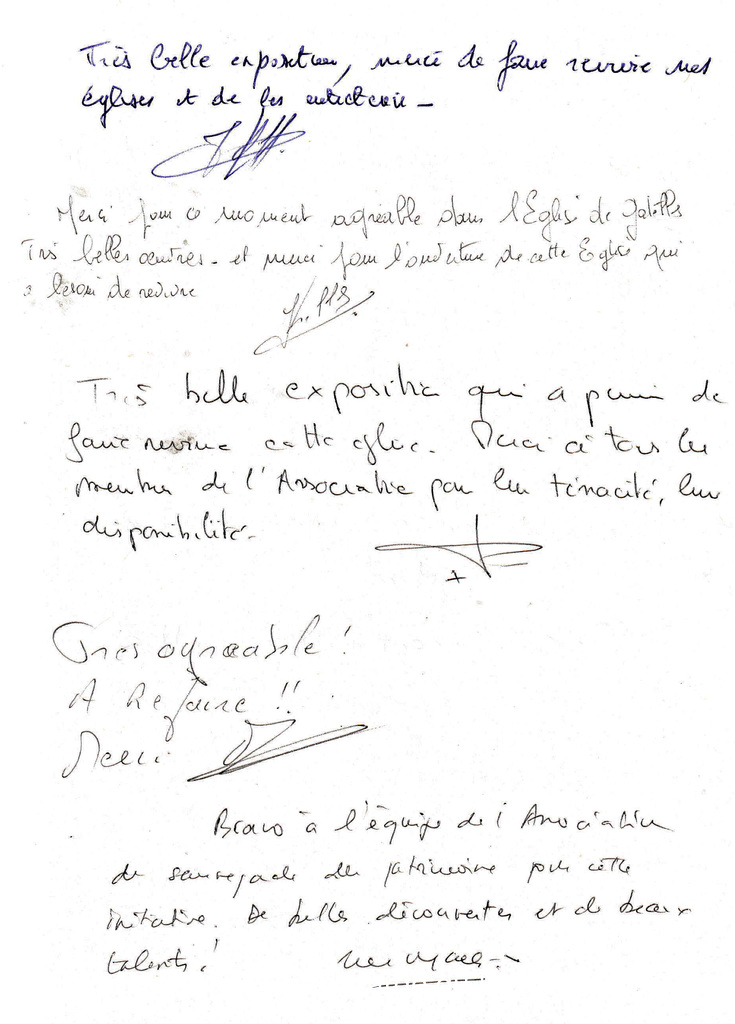 Très belle exposition, merci de faire revivre nos
églises et de les entretenir -
Merci pour ce moment agréable dans l'Eglise de
Très belles œuvres - et merci pour l'ouverture de cette Eglise qui
a besoin de revivre
Très belle exposition qui a permis de
faire revivre cette église. Merci à tous les
membres de l'Association pour leur ténacité, leur
disponibilité.
Très agréable !
A Refaire !!
Merci
Bravo à l'équipe de l'Association
de sauvegarde du patrimoine pour cette
initiative. De belles découvertes et de beaux
talents !